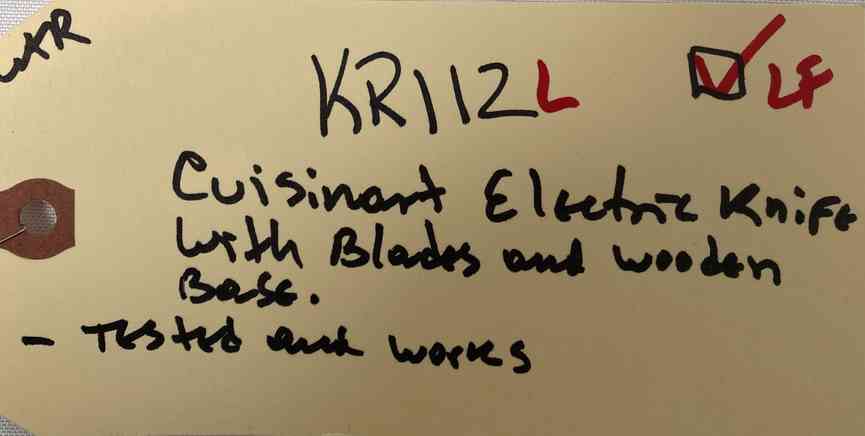 KR112L
LF
Cuisinart Electric Knife
with Blades and wooden
Base.
- Tested and works